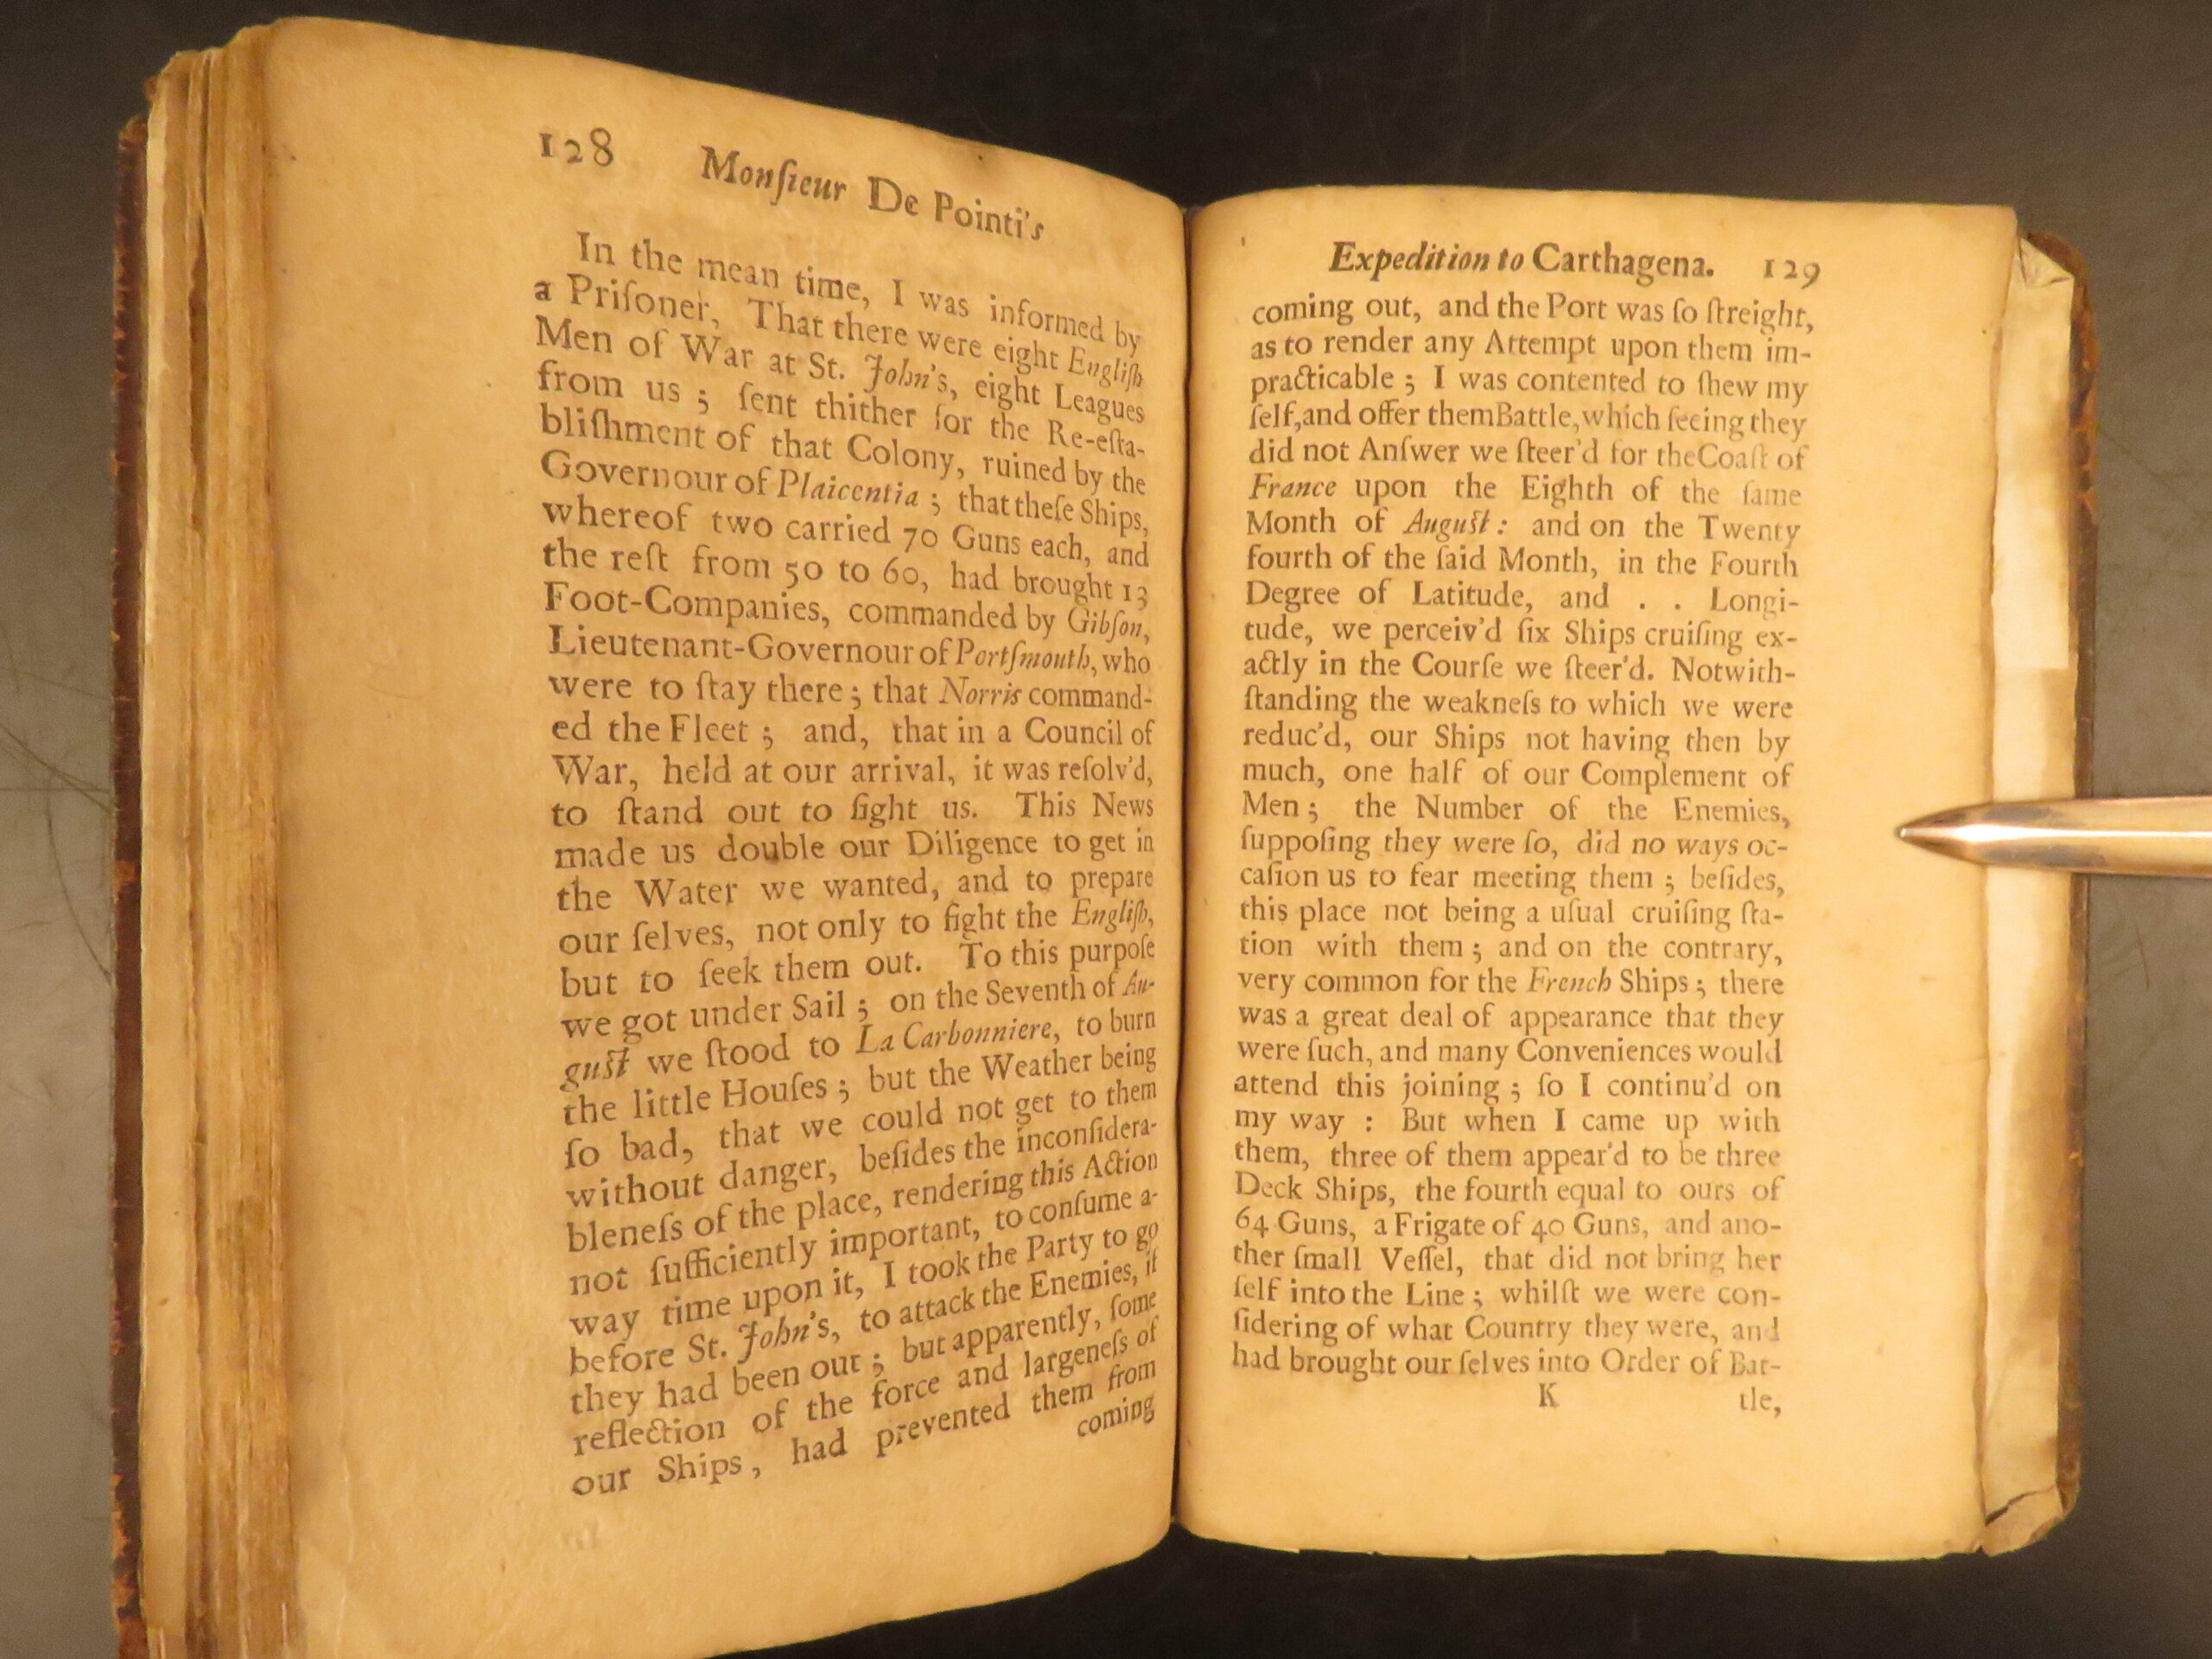 128 Monſieur De Pointi's
In the mean time, I was informed by
a Priſoner, That there were eight Engliſh
Men of War at St. John's, eight Leagues
from us ; ſent thither for the Re-eſta-
bliſhment of that Colony, ruined by the
Governour of Plaicentia ; that theſe Ships,
whereof two carried 70 Guns each, and
the reſt from 50 to 60, had brought 13
Foot-Companies, commanded by Gibſon,
Lieutenant-Governour of Portſmouth, who
were to ſtay there ; that Norris command-
ed the Fleet ; and, that in a Council of
War, held at our arrival, it was reſolv'd,
to ſtand out to fight us. This News
made us double our Diligence to get in
the Water we wanted, and to prepare
our ſelves, not only to fight the Engliſh,
but to ſeek them out. To this purpoſe
we got under Sail ; on the Seventh of Au-
guſt we ſtood to La Carbonniere, to burn
the little Houſes ; but the Weather being
ſo bad, that we could not get to them
without danger, beſides the inconſidera-
bleneſs of the place, rendering this Action
not ſufficiently important, to conſume a-
way time upon it, I took the Party to go
before St. John's, to attack the Enemies, if
they had been out ; but apparently, ſome
reflection of the force and largeneſs of
our Ships, had prevented them from
coming
Expedition to Carthagena. 129
coming out, and the Port was ſo ſtreight,
as to render any Attempt upon them im-
practicable ; I was contented to ſhew my
ſelf,and offer themBattle,which ſeeing they
did not Anſwer we ſteer'd for theCoaſt of
France upon the Eighth of the ſame
Month of Auguſt : and on the Twenty
fourth of the ſaid Month, in the Fourth
Degree of Latitude, and . . Longi-
tude, we perceiv'd ſix Ships cruiſing ex-
actly in the Courſe we ſteer'd. Notwith-
ſtanding the weakneſs to which we were
reduc'd, our Ships not having then by
much, one half of our Complement of
Men ; the Number of the Enemies,
ſuppoſing they were ſo, did no ways oc-
caſion us to fear meeting them ; beſides,
this place not being a uſual cruiſing ſta-
tion with them ; and on the contrary,
very common for the French Ships ; there
was a great deal of appearance that they
were ſuch, and many Conveniences would
attend this joining ; ſo I continu'd on
my way : But when I came up with
them, three of them appear'd to be three
Deck Ships, the fourth equal to ours of
64 Guns, a Frigate of 40 Guns, and ano-
ther ſmall Veſſel, that did not bring her
ſelf into the Line ; whilſt we were con-
ſidering of what Country they were, and
had brought our ſelves into Order of Bat-
K tle,